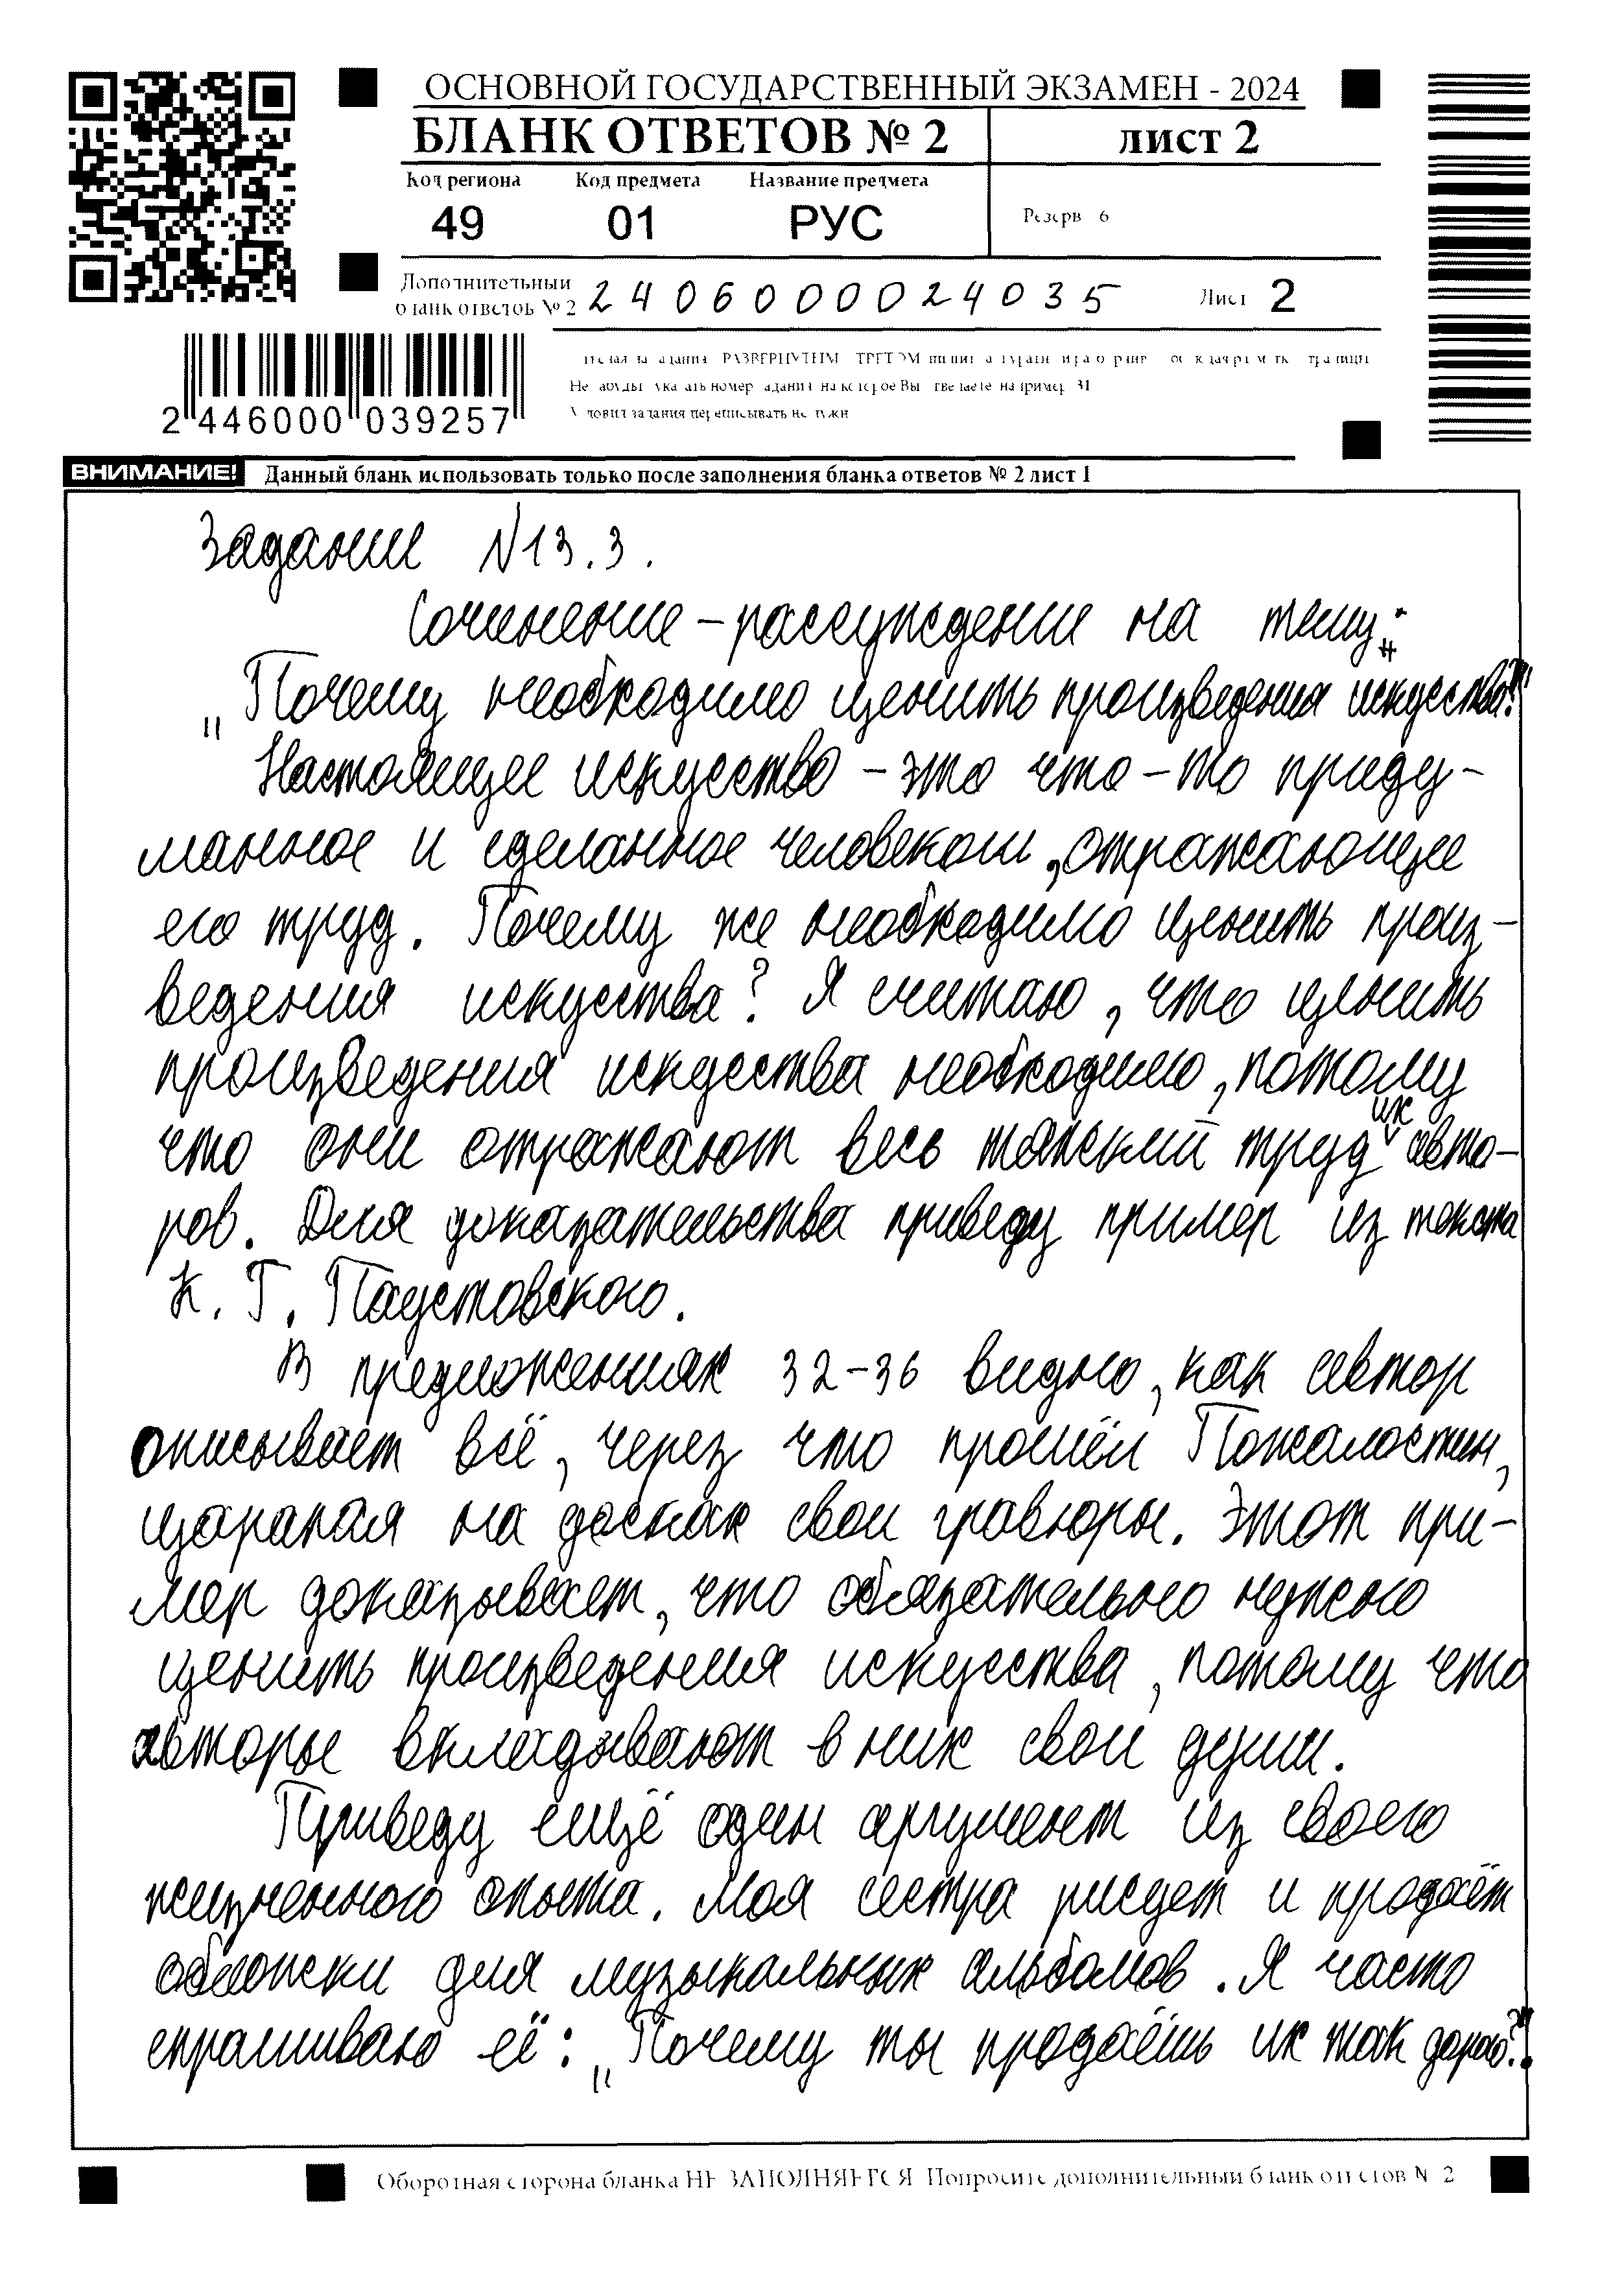 ОСНОВНОЙ ГОСУДАРСТВЕННЫЙ ЭКЗАМЕН - 2024
БЛАНК ОТВЕТОВ № 2
лист 2
Код региона Код предмета Название предмета
49 01 РУС
Резерв 6
Дополнительный
бланк ответов № 2
2406000024035
Лист 2
2 446000 039257
Условия задания переписывать не нужно
ВНИМАНИЕ! Данный бланк использовать только после заполнения бланка ответов № 2 лист 1
Задание №13.3.
Сочинение-рассуждение на тему:
„Почему необходимо ценить произведения искусства?"
Настоящее искусство - это что-то приду-
манное и сделанное человеком, отражающее
его труд. Почему же необходимо ценить произ-
ведения искусства? Я считаю, что ценить
произведения искусства необходимо, потому
что они отражают весь тяжкий труд их авто-
ров. Для доказательства приведу пример из текста
К. Г. Паустовского.
В предложениях 32-36 видно, как автор
описывает всё, через что прошёл Пожалостин,
царапая на досках свои гравюры. Этот при-
мер доказывает, что обязательно нужно
ценить произведения искусства, потому что
авторы вкладывают в них свои души.
Приведу ещё один аргумент из своего
жизненного опыта. Моя сестра рисует и продаёт
обложки для музыкальных альбомов. Я часто
спрашиваю её: „Почему ты продаёшь их так дорого?".
Оборотная сторона бланка НЕ ЗАПОЛНЯЕТСЯ Попросите дополнительный бланк ответов № 2